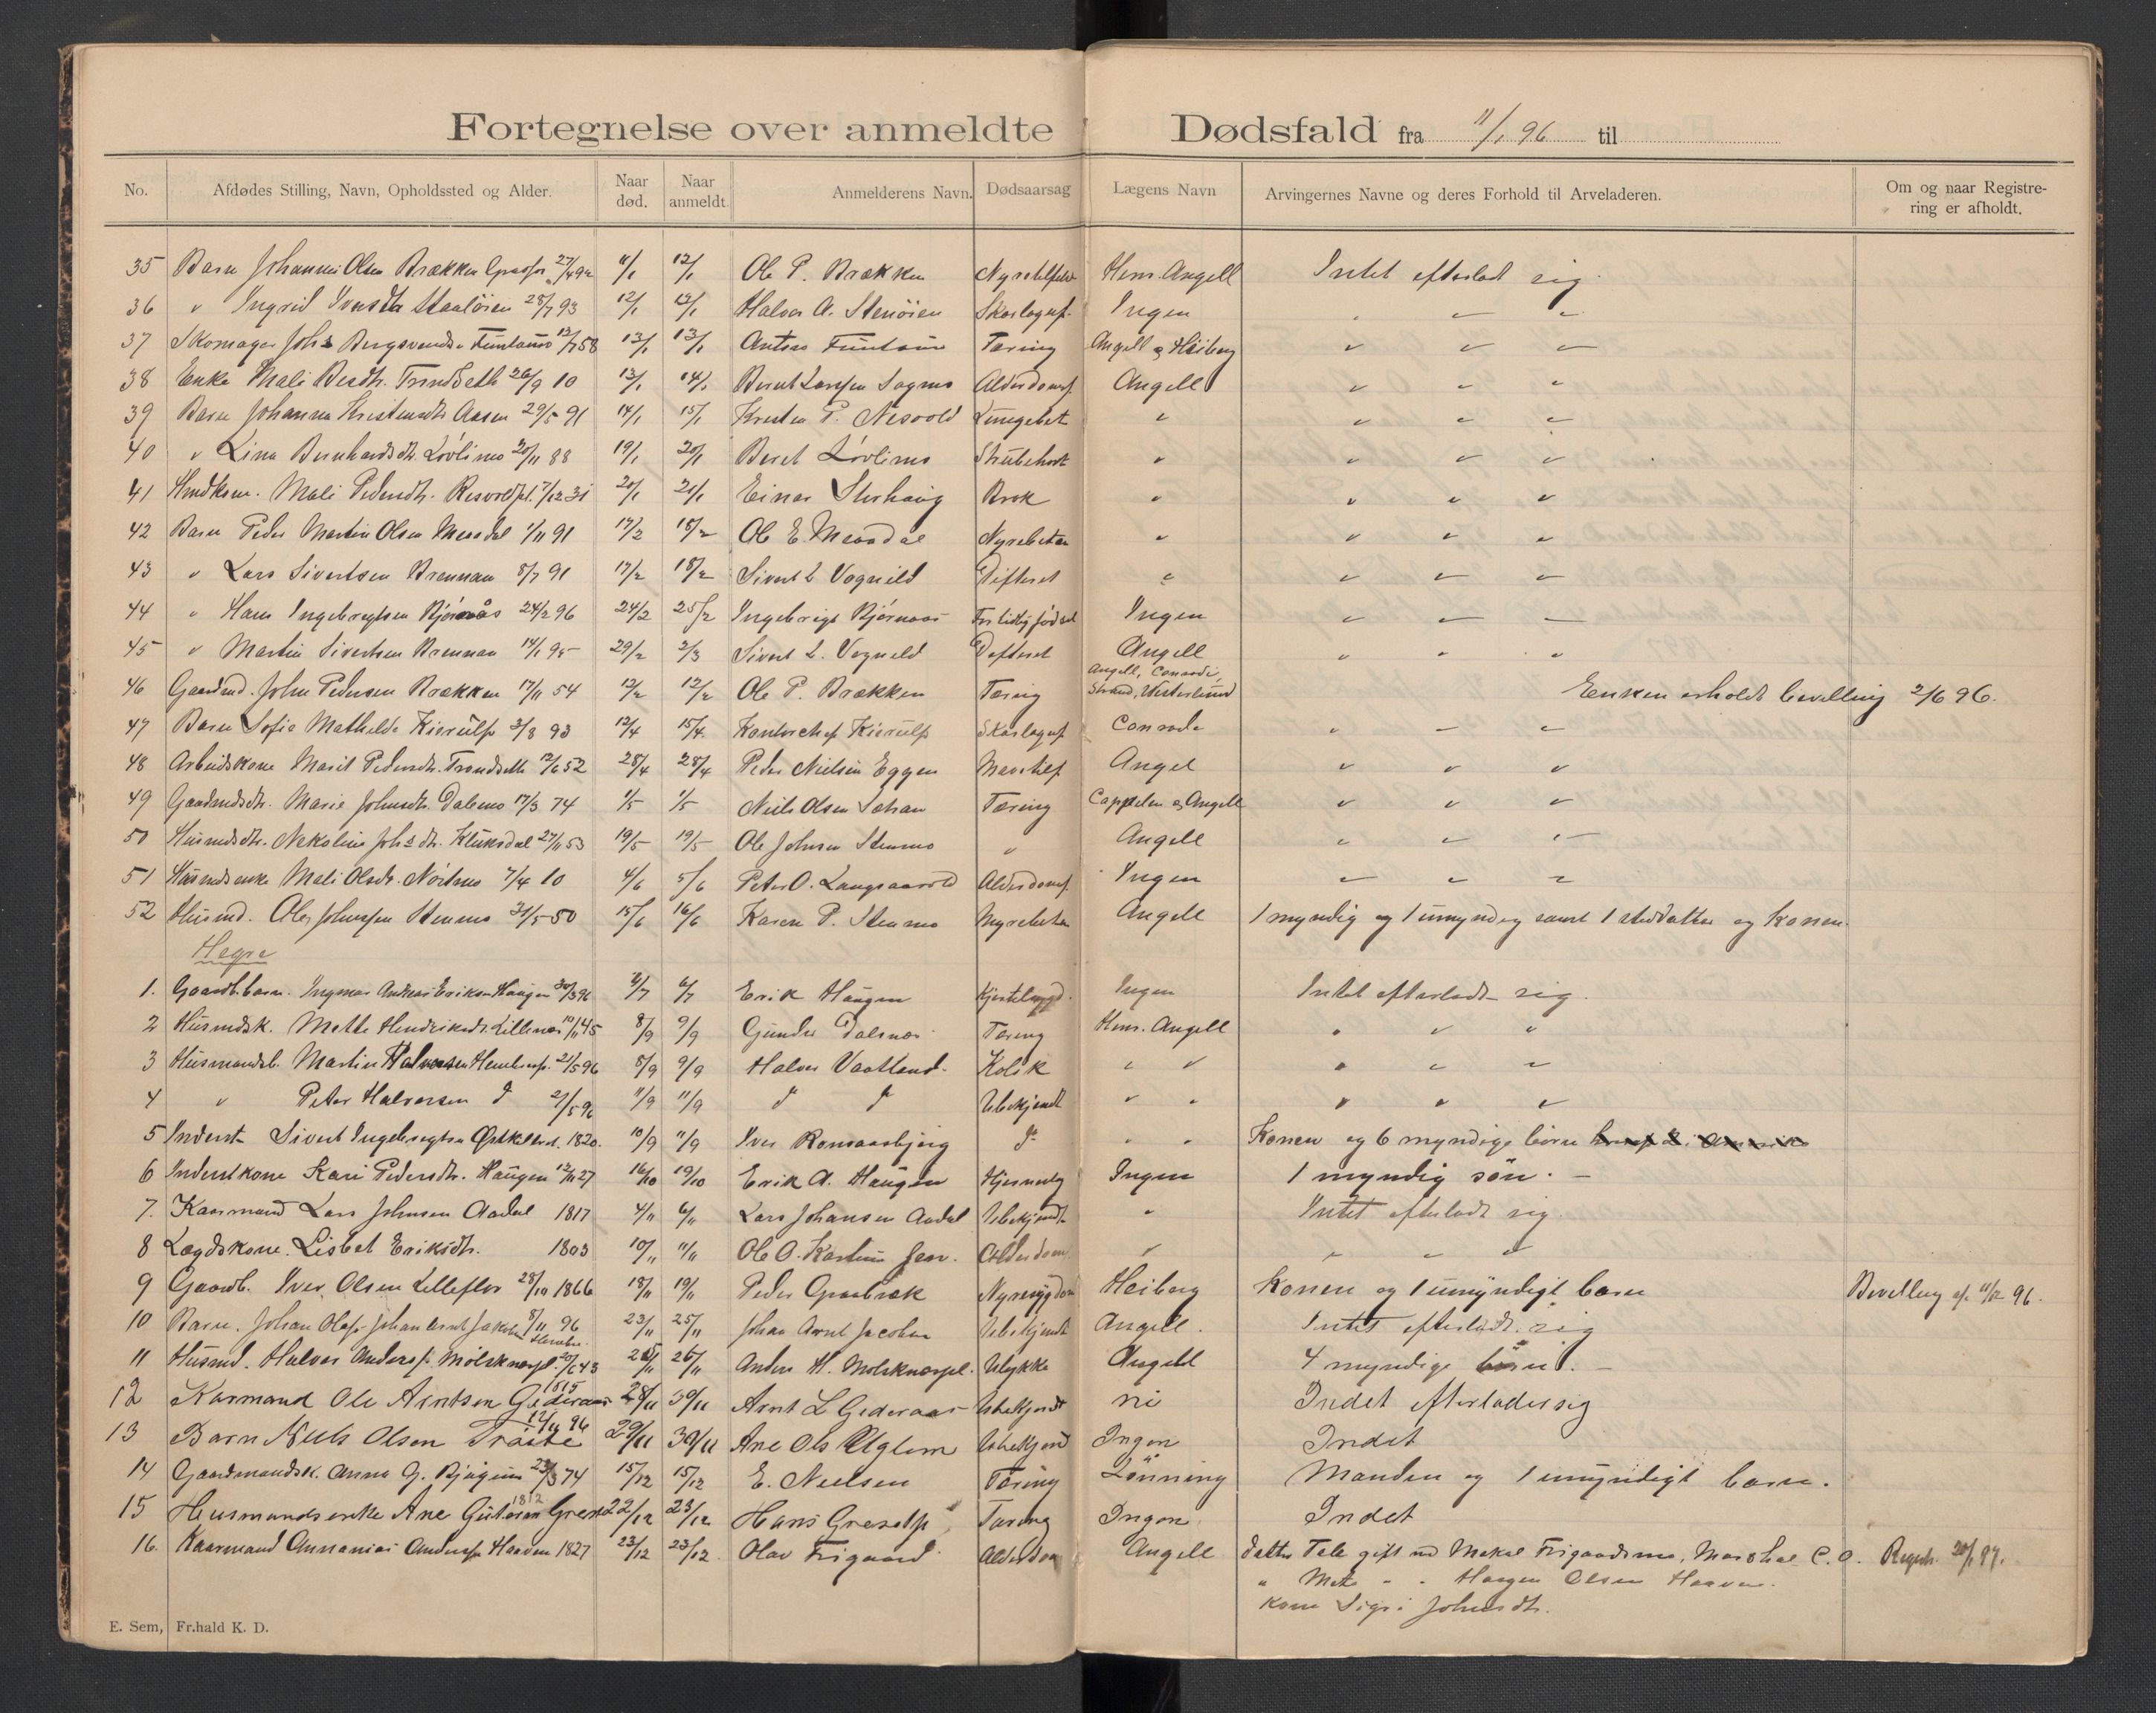 Fortegnelse over anmeldte Dødsfald fra 11/1 96 til
No. Afdødes Stilling, Navn, Opholdssted og Alder. Naar død. Naar anmeldt Anmelderens Navn. Dødsaarsag Lægens Navn Arvingernes Navne og deres Forhold til Arveladeren. Om og naar Registrering er afholdt.
35 Barn Johannes Olsen Brækken 11/1 12/1 Ole P. Brækken Henr. Angell Intet efterladt sig.
36 " Ingrid 28/7 93 12/1 13/1 Halvor A. Stenöien Skarlagsf. Ingen " "
37 Skomager Johs Bergsvends. 12/7 58 13/1 13/1 Tæring Angell og Heiberg " " "
38 Enke Mali Trondseth 26/9 10 13/1 14/1 Bernt Larssen Sagmo Alderdomsf. Angell " " "
39 Barn Johanna Kristensdtr. Aasen 29/5 91 14/1 15/1 Kresten P. Lungebet " " " "
40 " Lina Bernhardsdtr. Lövlimo 20/11 88 19/1 20/1 Beret Lövlimo Strubehost " " " "
41 Mali Pedersdtr. 7/12 31 20/1 21/1 Einar Brok " " " "
42 Barn Peder Martin Olsen Meradal 1/11 91 17/2 18/2 Ole E. Meradal Nyrebetæn " " " "
43 " Lars Sivertsen Brennan 8/7 91 17/2 18/2 Sivert L. Vognild Difterit " " " "
44 " Hans Ingebregtsen Bjørnås 24/2 96 24/2 25/2 Ingebrigt Bjørnaas For tidlig fødsel Ingen " " "
45 " Martin Sivertsen Brennan 14/1 95 29/2 2/3 Sivert L. Vogneld Difterit Angell " " "
46 Gaardmd. John Pedersen Brækken 17/11 54 12/2 12/2 Ole P. Brækken Tæring Angell, Conradi, Strand, Westerlund Enken erholdt bevilling 2/6 96.
47 Barn Sofie Mathilde Kierulf 3/8 93 12/4 15/4 Kontorchef Kierulf Skarlagsf Conrade " " "
48 Arbeidskone Marit Pedersdtr. Trondseth 12/6 52 28/4 28/4 Peder Nielsen Eggen Angel " " "
49 Gaardmdsdtr. Marie Johnsdtr. Dalemo 17/3 74 1/5 1/5 Niels Olsen Tæring Cappelen og Angell " " "
50 Husmdsdtr. Nekoline Johsdtr. Kluksdal 27/11 53 19/5 19/5 Ole Johnsen Stenmo " Angell " " "
51 Husmdsenke Mali Olsdtr. 7/4 10 4/6 5/6 Peter O. Alderdomsf. Ingen " " "
52 Husmd. Ole Johnssen Stenmo 31/5 50 15/6 16/6 Karen P. Stenmo Nyrebetæn Angell 1 myndig og 1 umyndig samt 1 steddatter og konen.
Hegre
1. Gaardb.barn. Ingmar Andreas Eriksen Haugen 30/3 96 6/7 Erik Haugen Ingen Intet efterladt sig.
2 Husmdsk. Mette Hendriksdtr. Lillemo 10/11 45 8/9 9/9 Gunder Dalsmo Tæring Henr. Angell " " "
3 Husmandsb. Martin Halvorsen 21/5 96 8/9 9/9 Halvor Vaatland Kolik " " " " "
4 " Peter Halvorsen do 21/5 96 11/9 11/9 do do Ubekjendt " " " " "
5 Inderst Sivert Ingebregtsen 1820. 10/9 11/9 Iver Ramsaasbjørg do " " Konen og 6 myndige börn
6 Inderstkone Kari Pedersdtr. Haugen 12/11 27 16/10 19/10 Erik A. Haugen Ingen 1 myndig sön. –
7. Kaarmand Lars Johnsen Aadal 1817 4/11 6/11 Lars Johansen Aadal Ubekjendt " Intet efterladt sig.
8 Lægdskone. Lisbet Eriksdtr. 1803 10/11 11/11 Ole O. Alderdom " " " "
9 Gaardb. Iver Olsen Lilleflor 28/10 1866 18/11 19/11 Peder Nyresygdom Heiberg Konen og 1 umyndigt barn Bevilling af 11/12 96.
10 Barn. Johan Olaf Johan Arnt Jakobs. 8/11 96 23/11 25/11 Johan Arnt Jacobsen Ubekjendt Angell. Intet efterladt sig
11 Husmd. Halvor Anderss. Mölsknæspl. 20/6 43 26/11 Anders H. Molsknæspl. Ulykke Angell 4 myndige börn. –
12 Karmand Ole Arntsen Gederaas 1815 28/11 30/11 Arnt L Gederaas Ubekjendt nei Indet efterlader sig
13 Barn Nels Olsen 12/11 96 29/11 30/11 Ane Ols Uglem Ubekjend Ingen Indet
14 Gaardmandsk. Anna G. 23/3 74 15/12 15/12 E. Nielsen Tæring Lönning Manden og 1 umyndigt barn.
15 Husmandsenke Ane 1812 22/12 23/12 Hans Tæring Ingen Indet
16. Kaarmand Annanias Anderss. Haaven 1827 23/12 23/12 Olav Frigaard Alderdom Angell Datter Tale gift med Mekal Frigaardsmo, C. O. Registr. 20/1 97.
" Mette " " Haagen Olsen Haaven.
Kone Sigri Johnsdtr.
E. Sem, Fr.hald K. D.